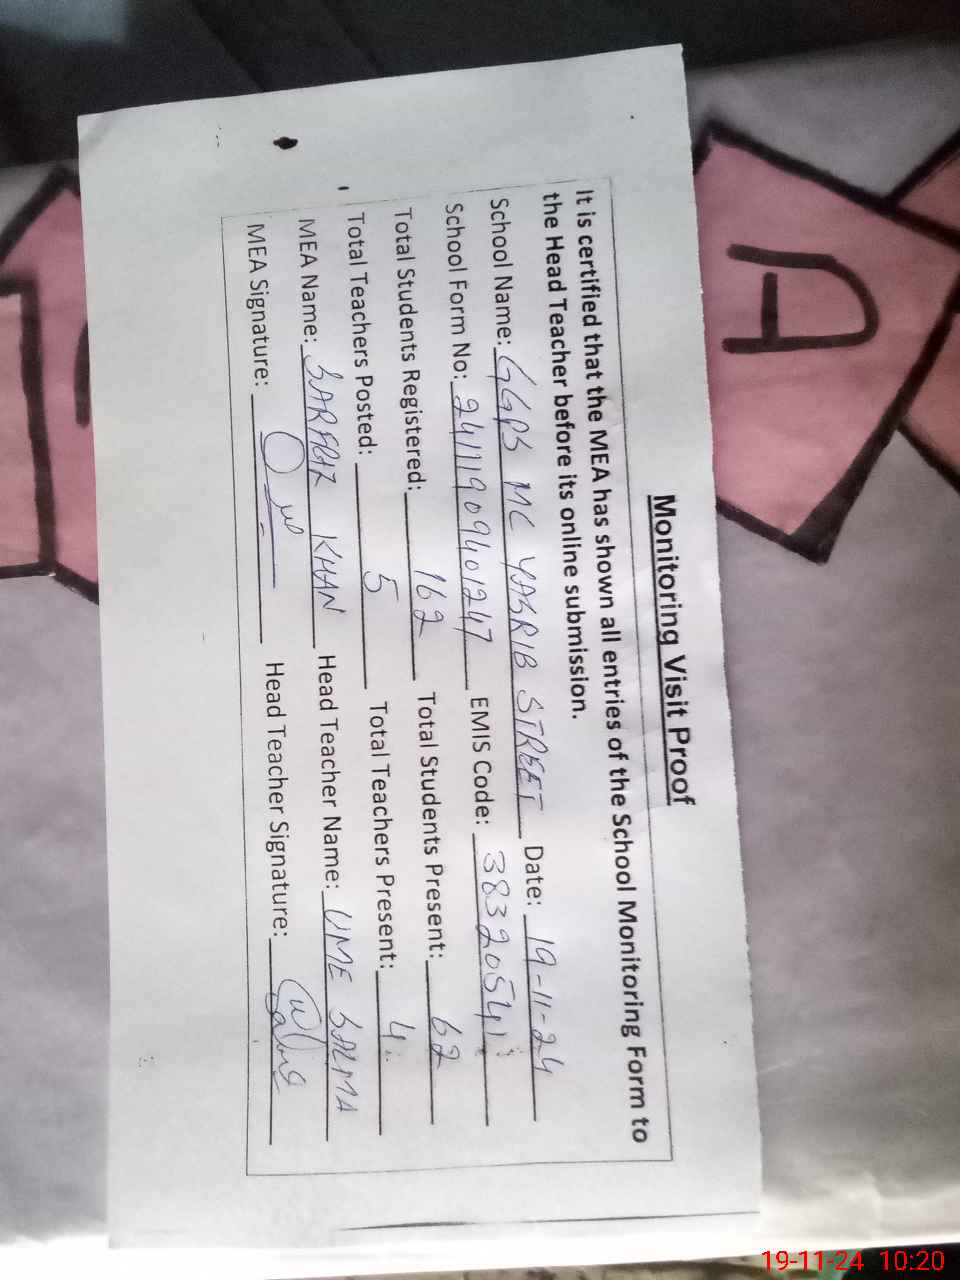 Monitoring Visit Proof
It is certified that the MEA has shown all entries of the School Monitoring Form to
the Head Teacher before its online submission.
School Name: GGPS MC YASRIB STREET Date: 19-11-24
School Form No: 24111909401247 EMIS Code: 38320541
Total Students Registered: 162 Total Students Present: 62
Total Teachers Posted: 5 Total Teachers Present: 4
MEA Name: SARFRAZ KHAN Head Teacher Name: UME SALMA
MEA Signature: Head Teacher Signature:
A
19-11-24 10:20